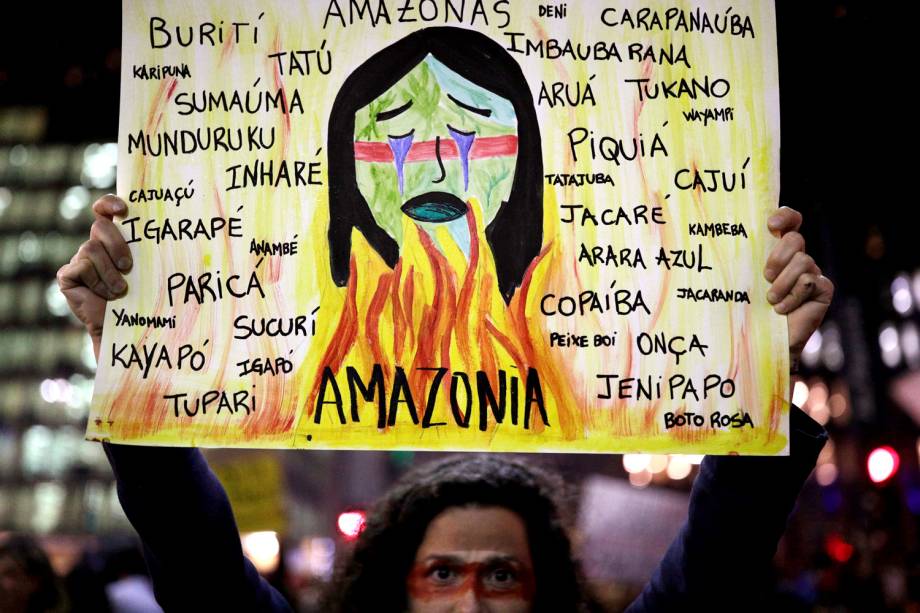 AMAZONAS
BURITÍ
TATÚ
KARIPUNA
SUMAÚMA
MUNDURUKU
INHARÉ
CAJUAÇÚ
IGARAPÉ
ANAMBÉ
PARICÁ
YANOMAMI
SUCURÍ
KAYAPÓ
IGAPÓ
TUPARI
AMAZONIA
DENI
CARAPANAÚBA
IMBAUBARANA
ARUÁ
TUKANO
WAYAMPI
PIQUIÁ
TATAJUBA
CAJUÍ
JACARÉ
KAMBEBA
ARARA AZUL
COPAÍBA
JACARANDA
PEIXE BOI
ONÇA
JENIPAPO
BOTO ROSA